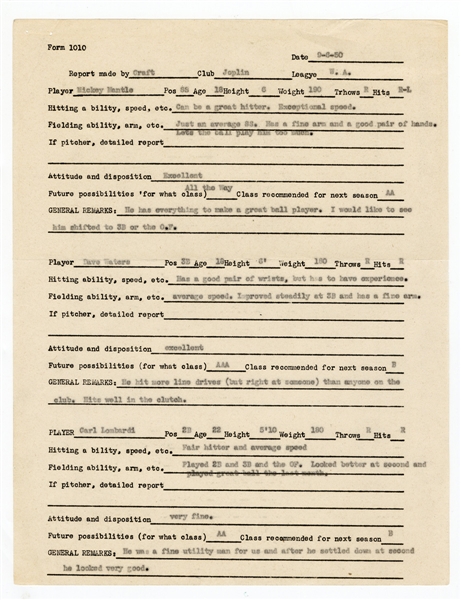 Form 1010
Date 9-6-50
Report made by Craft Club Joplin League W. A.
Player Mickey Mantle Pos SS Age 18 Height 6 Weight 190 Trhows R Hits R-L
Hitting a bility, speed, etc. Can be a great hitter. Exceptional speed.
Fielding ability, arm, etc. Just an average SS. Has a fine arm and a good pair of hands.
Lets the ball play him too much.
If pitcher, detailed report
Attitude and disposition Excellent
Future possibilities (for what class) All the Way Class recommended for next season AA
GENERAL REMARKS: He has everything to make a great ball player. I would like to see
him shifted to 3B or the O.F.
Player Dave Waters Pos 3B Age 18 Height 6' Weight 180 Throws R Hits R
Hitting ability, speed, etc. Has a good pair of wrists, but has to have experience.
Fielding ability, arm, etc. average speed. Improved steadily at 3B and has a fine arm.
If pitcher, detailed report
Attitude and disposition excellent
Future possibilities (for what class) AAA Class recommended for next season B
GENERAL REMARKS: He hit more line drives (but right at someone) than anyone on the
club. Hits well in the clutch.
PLAYER Carl Lombardi Pos 2B Age 22 Height 5'10 Weight 190 Throws R Hits R
Hitting a bility, speed, etc. Fair hitter and average speed
Fielding ability, arm, etc. Played 2B and 3B and the OF. Looked better at second and
played great ball the last month.
If pitcher, detailed report
Attitude and disposition very fine.
Future possibilities (for what class) AA Class recommended for next season B
GENERAL REMARKS: He was a fine utility man for us and after he settled down at second
he looked very good.